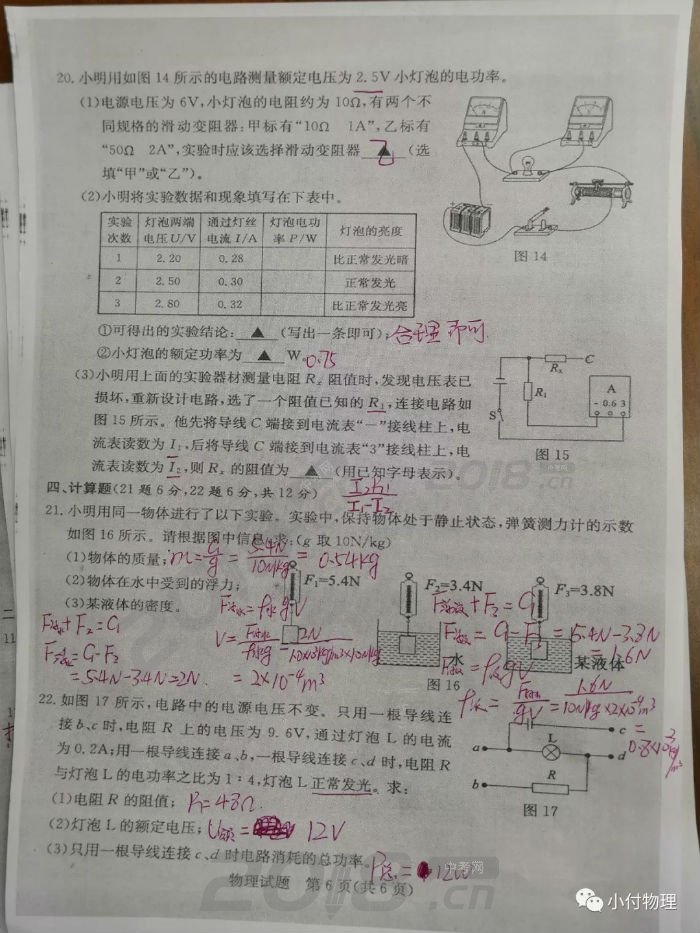 20. 小明用如图 14 所示的电路测量额定电压为 2.5V 小灯泡的电功率。
(1)电源电压为 6V,小灯泡的电阻约为 10Ω,有两个不
同规格的滑动变阻器:甲标有“10Ω 1A”,乙标有
“50Ω 2A”,实验时应该选择滑动变阻器 ▲ 乙 (选
填“甲”或“乙”)。
(2)小明将实验数据和现象填写在下表中。
实验次数 灯泡两端电压 U/V 通过灯丝电流 I/A 灯泡电功率 P/W 灯泡的亮度
1 2.20 0.28 比正常发光暗
2 2.50 0.30 正常发光
3 2.80 0.32 比正常发光亮
图 14
①可得出的实验结论: ▲ (写出一条即可); 合理即可.
②小灯泡的额定功率为 ▲ W。 0.75
(3)小明用上面的实验器材测量电阻 Rx 阻值时,发现电压表已
损坏,重新设计电路,选了一个阻值已知的 R1,连接电路如
图 15 所示。他先将导线 C 端接到电流表“−”接线柱上,电
流表读数为 I1,后将导线 C 端接到电流表“3”接线柱上,电
流表读数为 I2,则 Rx 的阻值为 ▲ (用已知字母表示)。
I2R1
I1-I2
Rx C
R1
A
- 0.6 3
S
图 15
四、计算题(21 题 6 分,22 题 6 分,共 12 分)
21. 小明用同一物体进行了以下实验。实验中,保持物体处于静止状态,弹簧测力计的示数
如图 16 所示。请根据图中信息,求:(g 取 10N/kg)
(1)物体的质量; m=G/g=5.4N/10N/kg=0.54kg
(2)物体在水中受到的浮力;
(3)某液体的密度。
F1=5.4N
F2=3.4N
F3=3.8N
水
某液体
图 16
F浮水+F2=G
F浮水=G-F2
=5.4N-3.4N=2N.
F浮水=ρ水gV
V=F浮水/ρ水g=2N/1.0×10³kg/m³×10N/kg
=2×10⁻⁴m³
F浮液+F3=G
F浮液=G-F3=5.4N-3.8N
=1.6N
F浮液=ρ液gV
ρ液=F浮液/gV=1.6N/10N/kg×2×10⁻⁴m³
=0.8×10³kg/m³
22. 如图 17 所示,电路中的电源电压不变。只用一根导线连
接 b、c 时,电阻 R 上的电压为 9.6V,通过灯泡 L 的电流
为 0.2A;用一根导线连接 a、b,一根导线连接 c、d 时,电阻 R
与灯泡 L 的电功率之比为 1∶4,灯泡 L 正常发光。求:
(1)电阻 R 的阻值; R=48Ω.
(2)灯泡 L 的额定电压; U额= 12V
(3)只用一根导线连接 c、d 时电路消耗的总功率。 P总=
a
b
c
d
L
R
图 17
物理试题 第 6 页(共 6 页)
中考网
2018.cn
小付物理